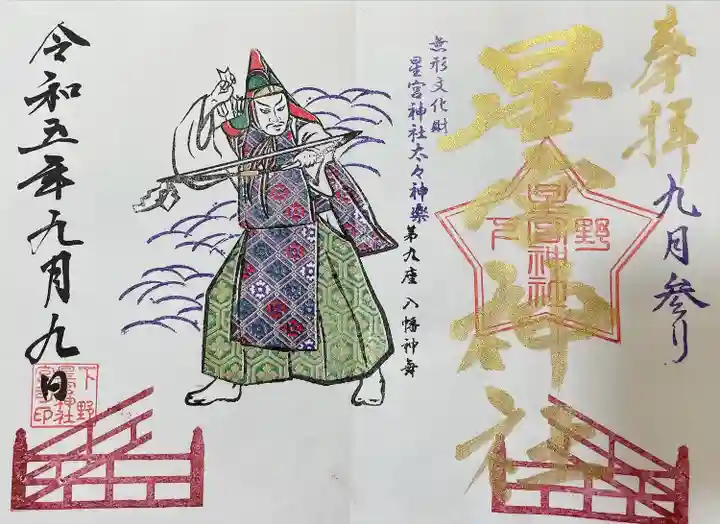 奉拝
九月参り
星宮神社
下野
星宮神社
無形文化財
星宮神社太々神楽
第九座 八幡神舞
令和五年九月九日
下野
星宮神社